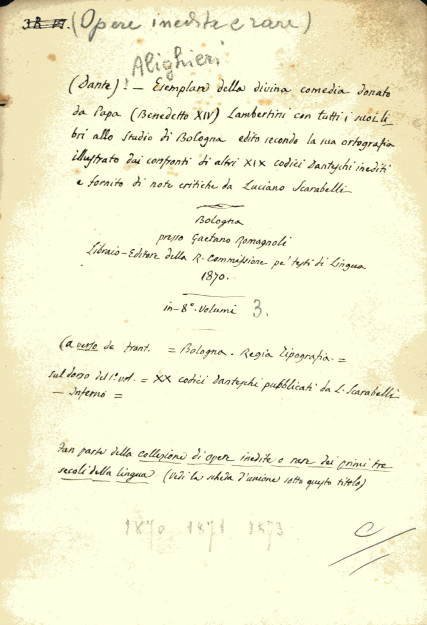 3 R 17. (Opere inedite e rare)
Alighieri
(Dante)! — Esemplare della divina comedia donato
da Papa (Benedetto XIV) Lambertini con tutti i suoi li
bri allo studio di Bologna edito secondo la sua ortografia
illustrato dai confronti di altri XIX codici Danteschi inediti
e fornito di note critiche da Luciano Scarabelli
Bologna
presso Gaetano Romagnoli
Libraio-Editore della R. Commissione pe' testi di Lingua
1870.
in-8° Volumi 3.
(a verso de front. = Bologna. Regia Tipografia. =
sul dorso del 1° vol. = XX codici danteschi pubblicati da L. Scarabelli
— Inferno =
Fan parte della collezione di opere inedite o rare dei primi tre
secoli della lingua (Vedi la scheda d'unione sotto questo titolo)
1870 1871 1873
C